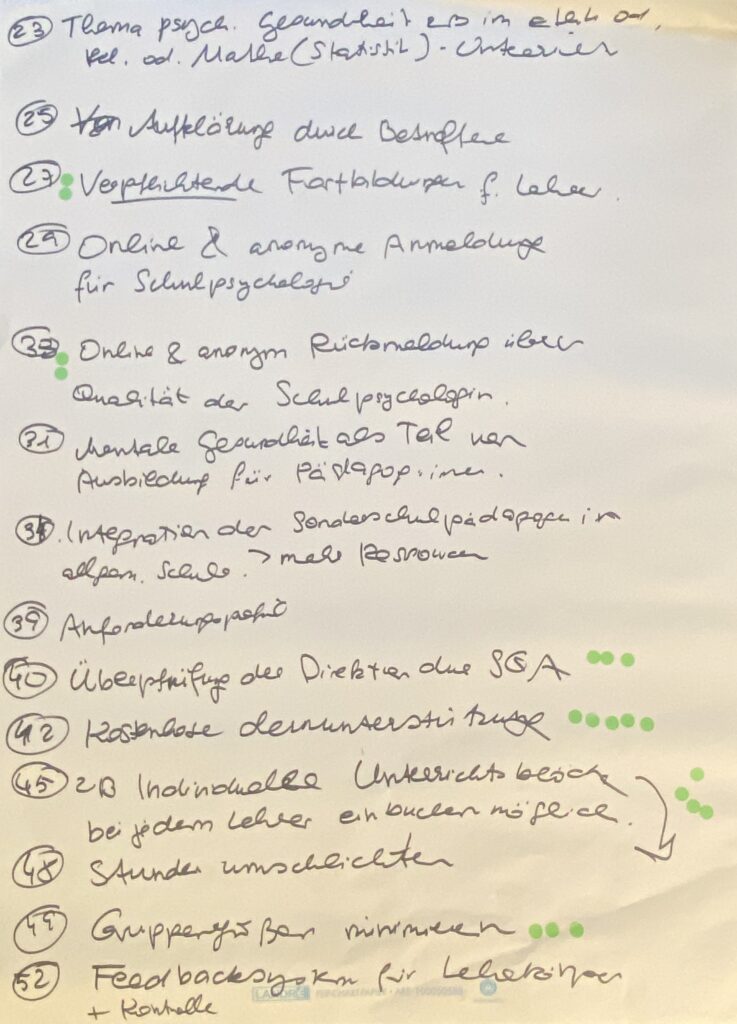 23 Thema psych. Gesundheit zB im Ethik od.
Rel. od. Mathe (Statistik) - Unterricht
25 Aufklärung durch Betroffene
27 Verpflichtende Fortbildungen f. Lehrer.
29 Online & anonyme Anmeldung
für Schulpsychologie
Online & anonym Rückmeldung über
Qualität der Schulpsychologin.
31 Mentale Gesundheit als Teil von
Ausbildung für Pädagog:innen.
Integration der Sonderschulpädagogen in
allgem. Schule. > mehr Ressourcen
39
40 Überprüfung der Direktion durch SGA
42 Kostenlose Lernunterstützung
45 zB Individuelle Unterrichtsblöcke
bei jedem Lehrer einbuchen möglich.
48 Stunden umschlichten
49 Gruppengrößen minimieren
52 Feedbacksystem für Lehrkörper
+ Kontrolle